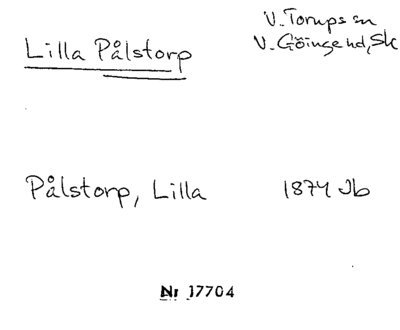 V. Torups sn
Lilla Pålstorp
V. Göinge hd, Sk
Pålstorp, Lilla
1874 Jb
Nr 17704